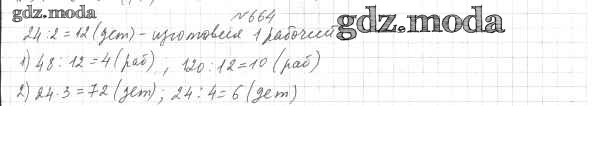 gdz.moda
№664
24:2=12 (дет) - изготовил 1 рабочий
gdz.moda
1) 48:12=4 (раб), 120:12=10 (раб)
2) 24·3=72 (дет); 24:4=6 (дет)